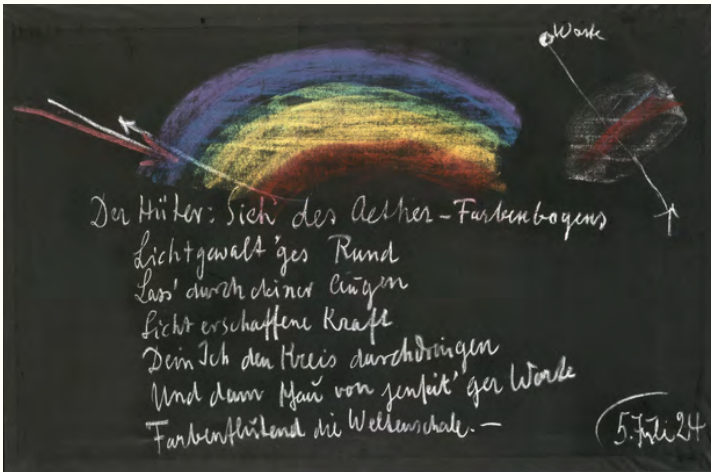 Warte
Der Hüter: Sieh des Aether-Farbenbogens
Lichtgewalt'ges Rund
Lass' durch deiner Augen
Licht erschaffene Kraft
Dein Ich den Kreis durchdringen
Und dann schau von jenseit'ger Warte
Farbenflutend die Weltenschale.–
5. Juli 24